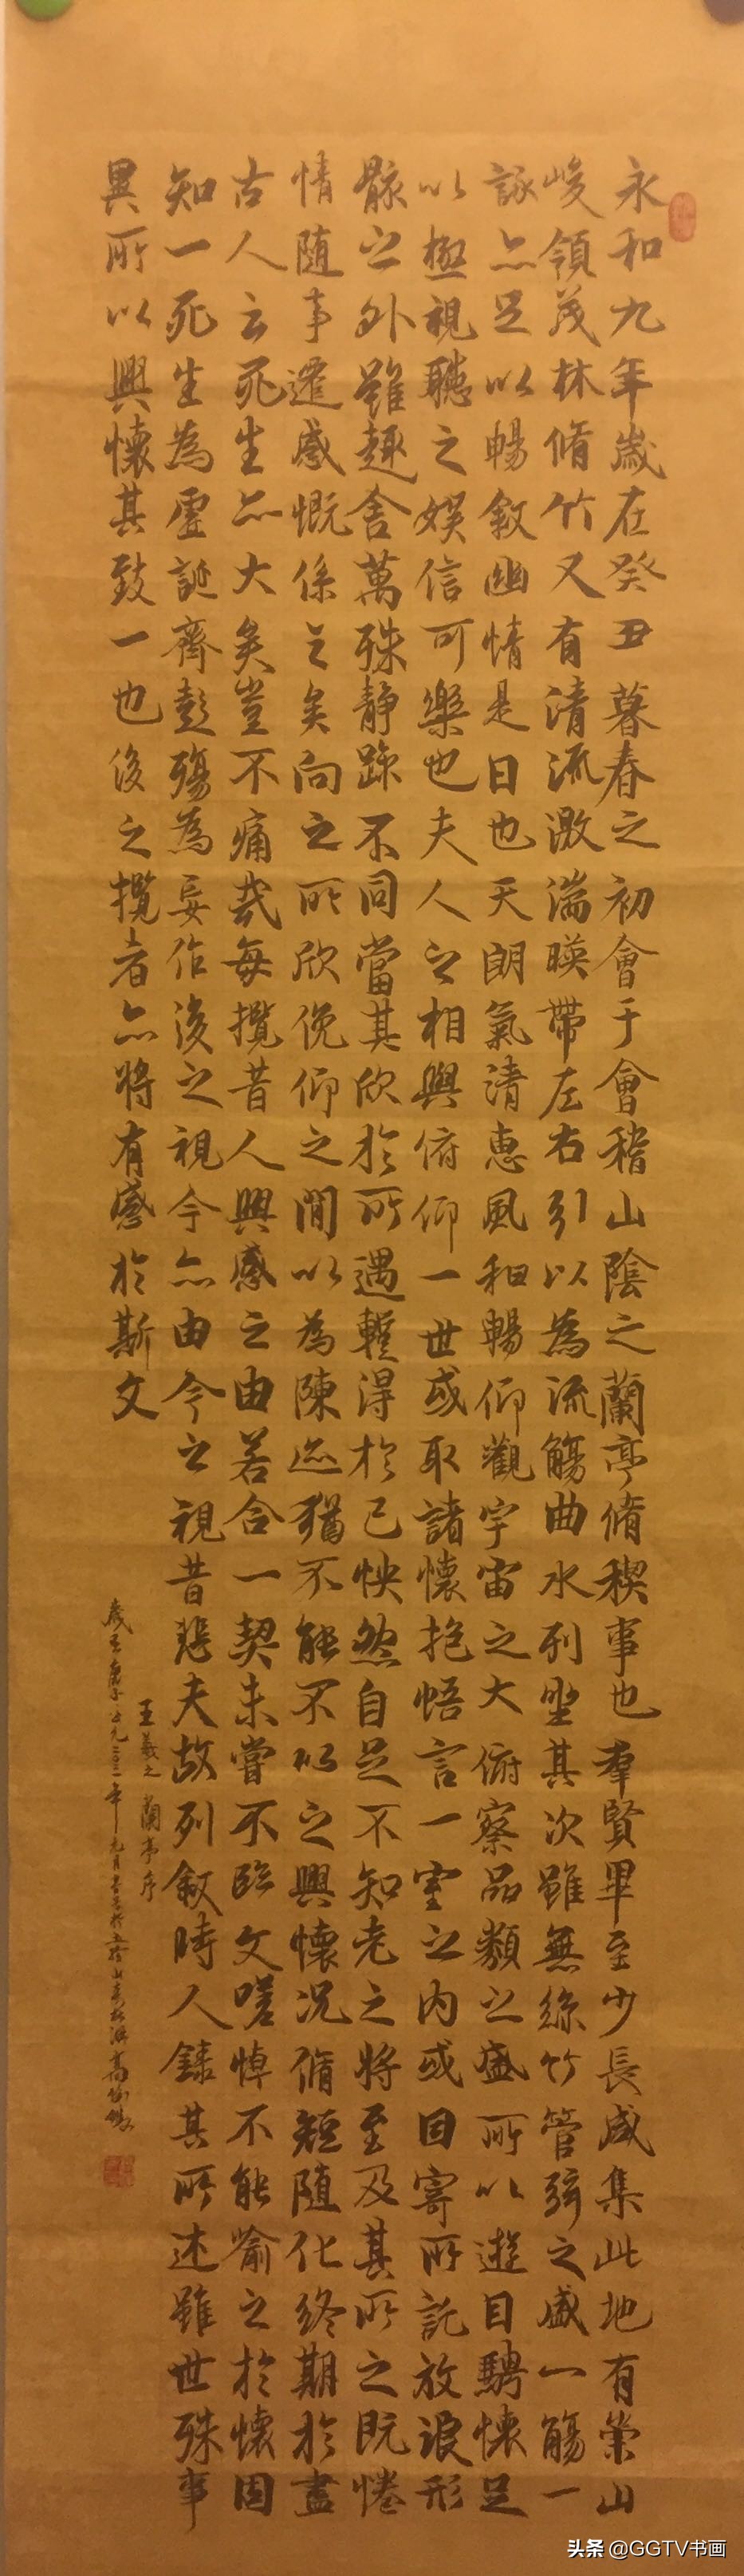 永和九年歲在癸丑暮春之初會于會稽山陰之蘭亭脩稧事也羣賢畢至少長咸集此地有崇山
峻領茂林脩竹又有清流激湍暎帶左右引以為流觴曲水列坐其次雖無絲竹管弦之盛一觴一
詠亦足以暢敘幽情是日也天朗氣清惠風和暢仰觀宇宙之大俯察品類之盛所以遊目騁懷足
以極視聽之娛信可樂也夫人之相與俯仰一世或取諸懷抱悟言一室之內或因寄所託放浪形
骸之外雖趣舍萬殊靜躁不同當其欣於所遇蹔得於己怏然自足不知老之將至及其所之既惓
情隨事遷感慨係之矣向之所欣俛仰之閒以為陳迹猶不能不以之興懷況脩短隨化終期於盡
古人云死生亦大矣豈不痛哉每攬昔人興感之由若合一契未嘗不臨文嗟悼不能喻之於懷固
知一死生為虛誕齊彭殤為妄作後之視今亦由今之視昔悲夫故列敘時人錄其所述雖世殊事
異所以興懷其致一也後之攬者亦將有感於斯文
王羲之蘭亭序
歲在庚子公元二〇二一年元月
头条 @GGTV书画